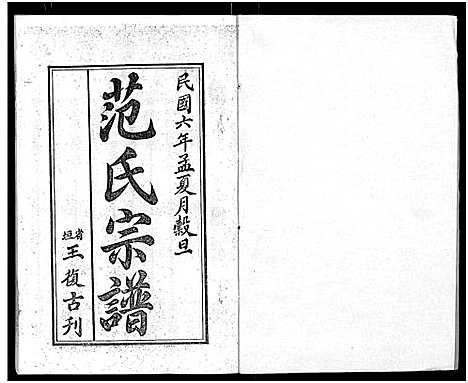 民國六年孟夏月穀旦
范氏宗譜
省垣王復古刊